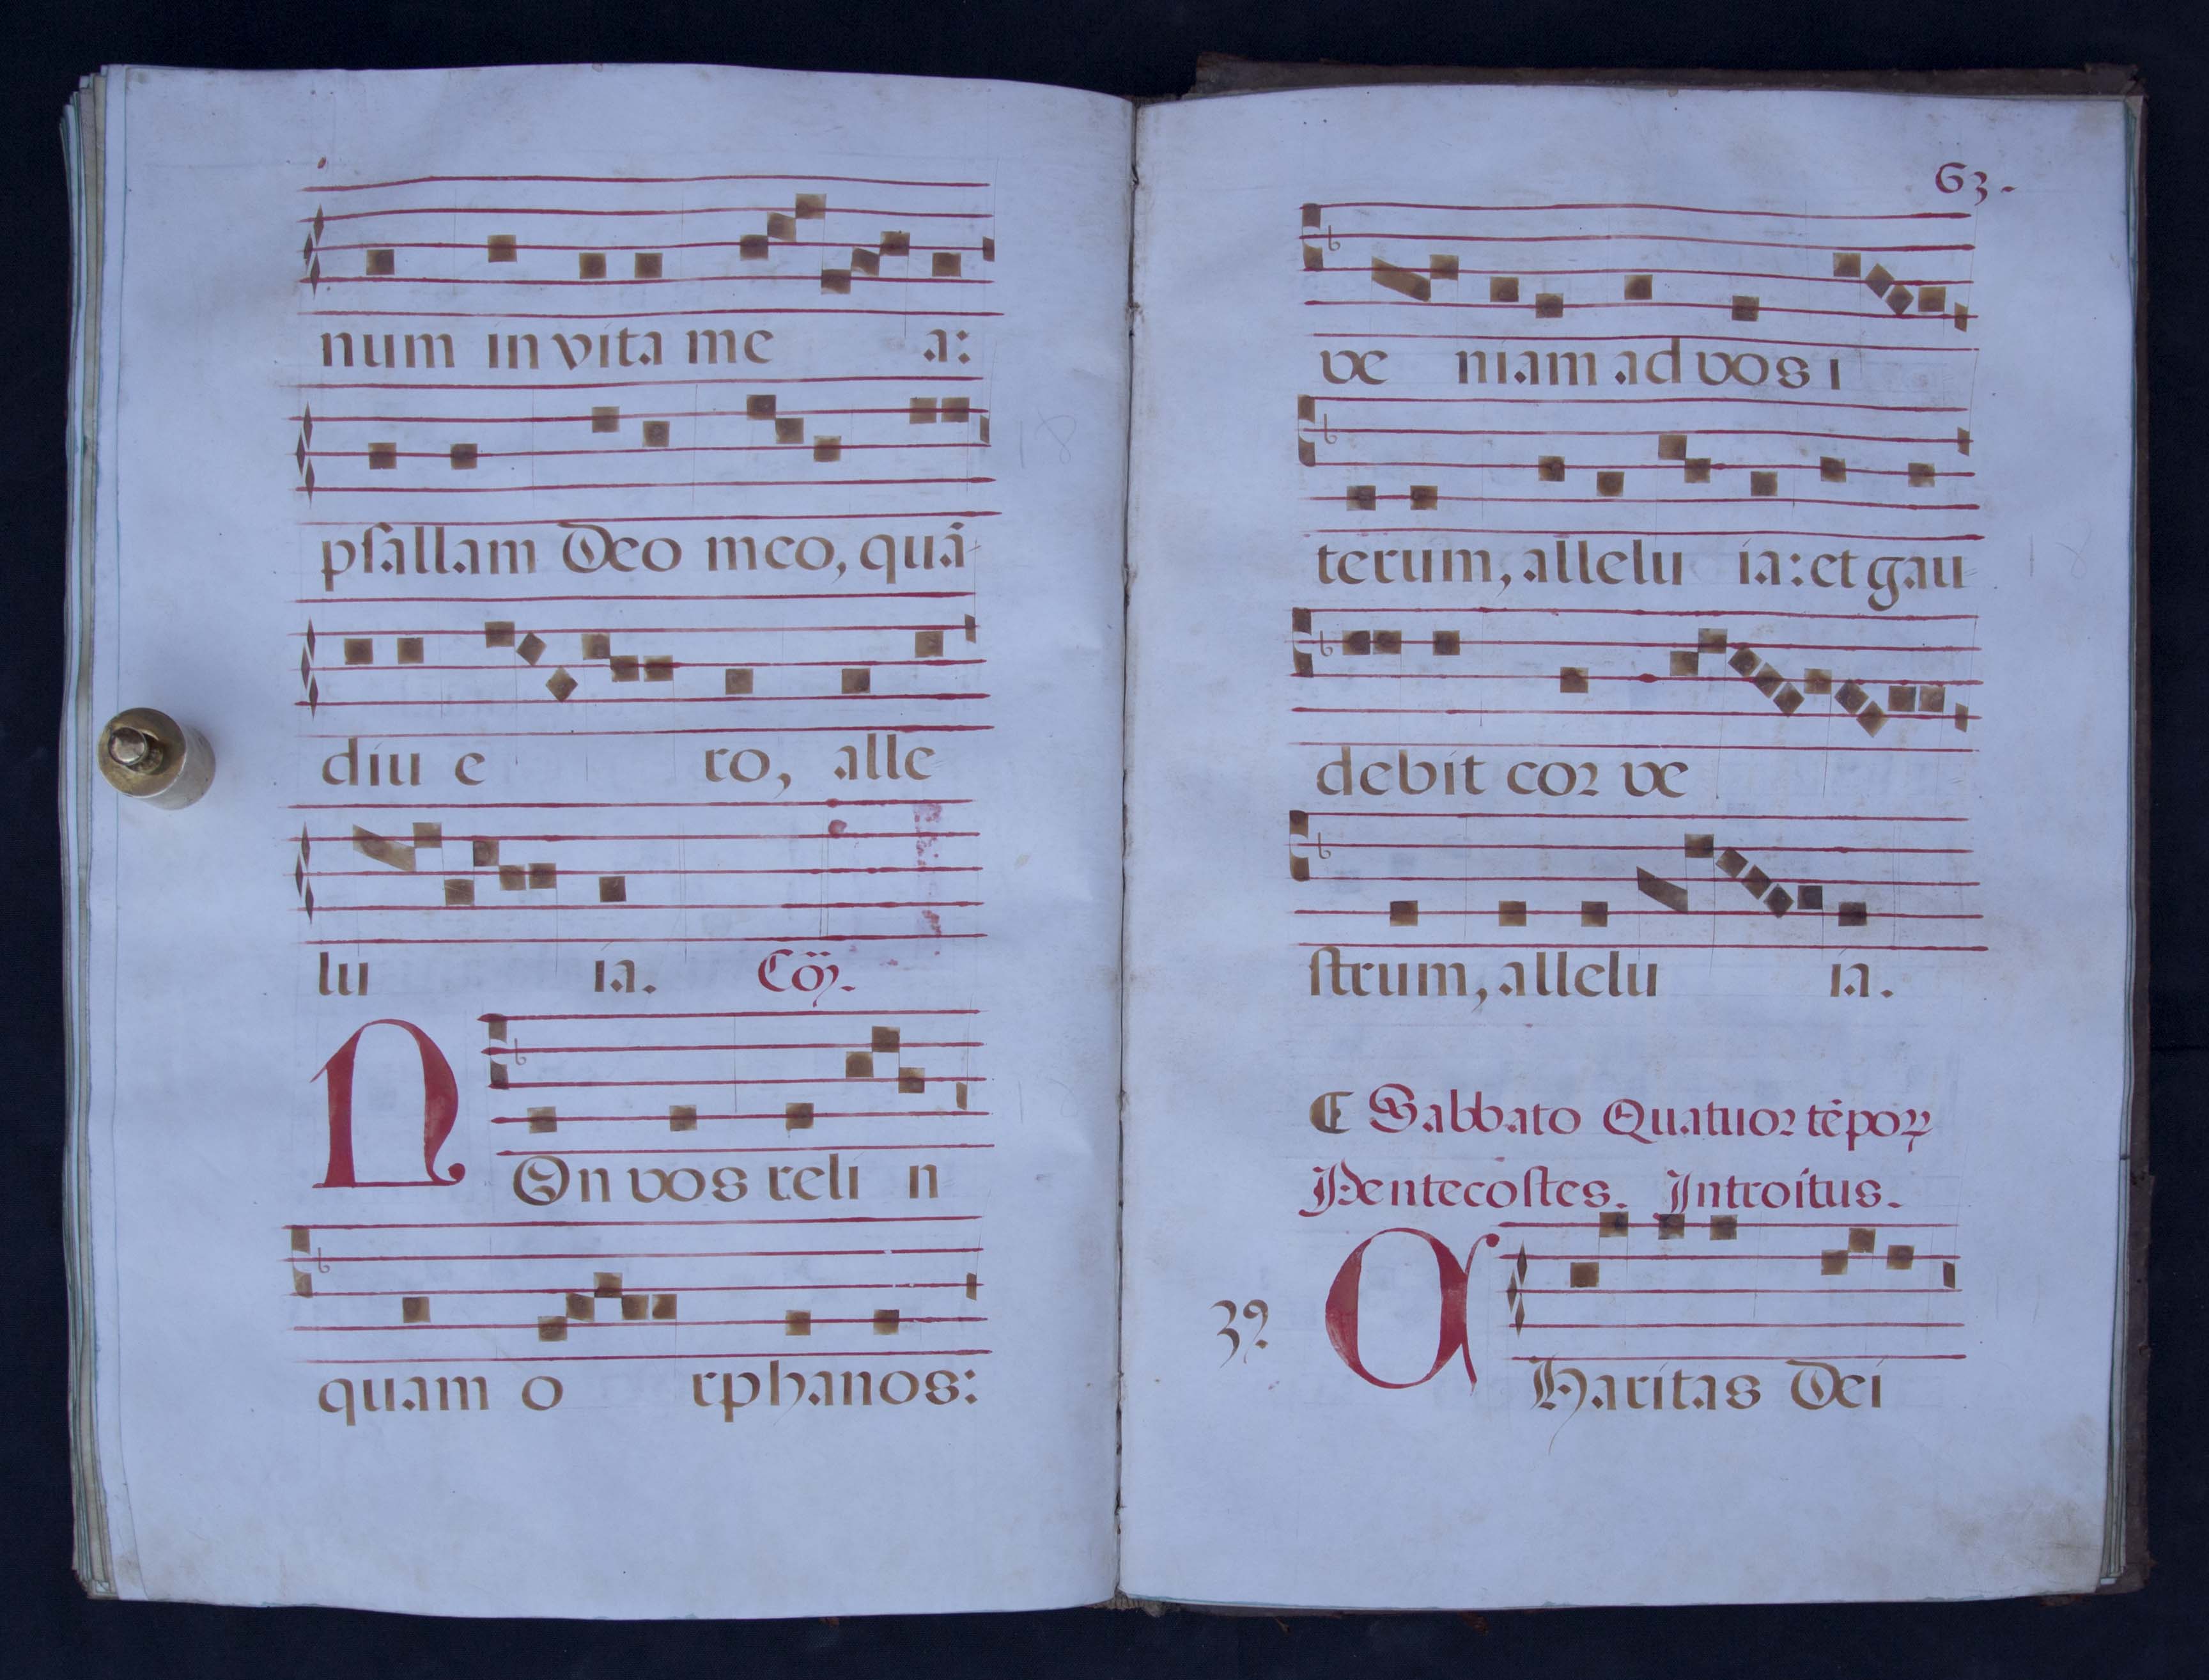 num in vita me a:
psallam Deo meo, quã
diu e ro, alle
lu ia. Cõȷ.
NOn vos reli n
quam o rphanos:
63.
ve niam ad vos i
terum, allelu ia: et gau
debit cor ve
strum, allelu ia.
Sabbato Quatuor tẽpoꝝ
Pentecostes. Introitus.
CHaritas Dei